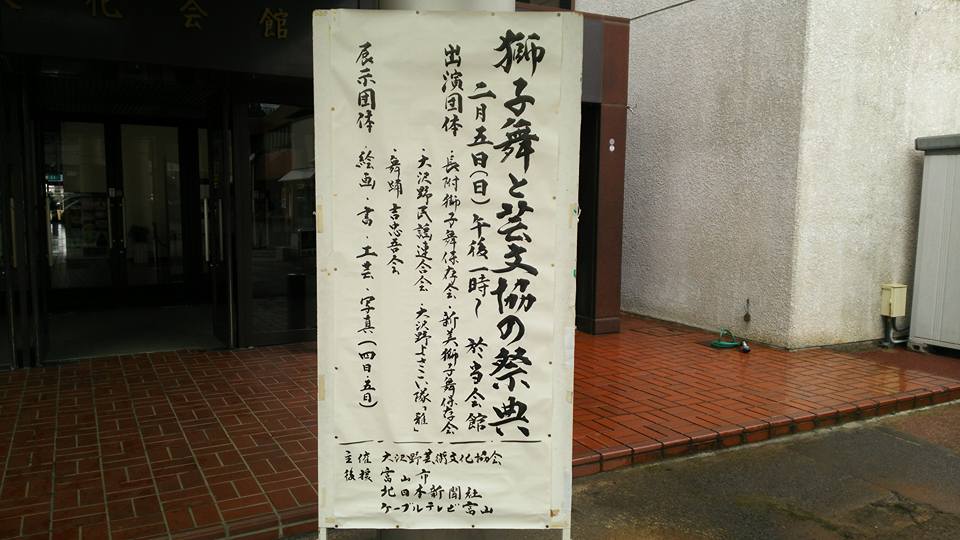 化会館
獅子舞と芸文協の祭典
二月五日(日)午後一時〜 於当会館
出演団体 ・長附獅子舞保存会・新美獅子舞保存会
・大沢野民謡連合会 ・大沢野よさこい隊「雅」
・舞踊 吉忠吾会
展示団体 ・絵画・書・工芸・写真(四日・五日)
主催 大沢野芸術文化協会
後援 富山市
北日本新聞社
ケーブルテレビ富山